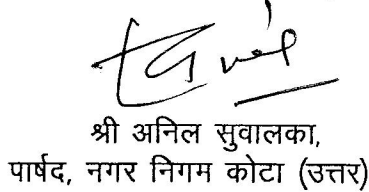 श्री अनिल सुवालका,
पार्षद, नगर निगम कोटा (उत्तर)